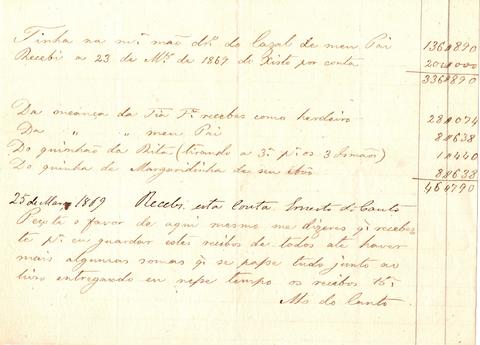 Tinha na mª mão drº do Cazal de meu Pai 136$890
Recebi a 23 de Mço de 1869 de Xisto por conta 200$000
336$890
Da meança da Tia Tª recebes como herdeiro 28$074
Da " " meu Pai 8$638
Do quinhão da Rita (tirando a 3ª pª os 3 Irmãos) 1$440
Do quinhã de Margaridinha de seu avô 8$638
46$790
25 de Març 1869 Recebi esta conta Ernesto do Canto
Peço te o favor de aqui mesmo me dizeres qᵉ recebes
te pª eu guardar estes recibos de todos até haver
mais algumas somas qᵉ se passe tudo junto ao
livro entregando eu nesse tempo os recibos Tºˢ
Ms do Canto